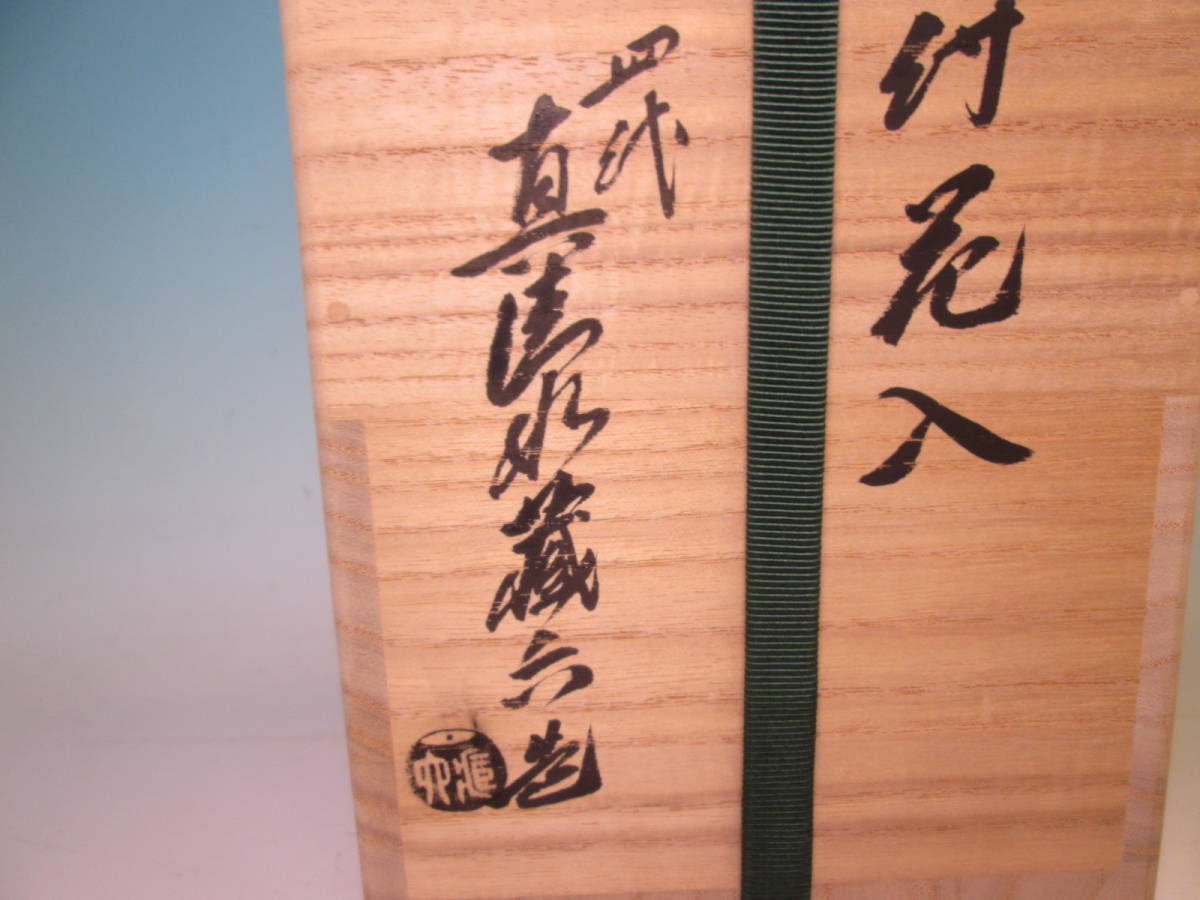 付花入
四代
真清水蔵六造